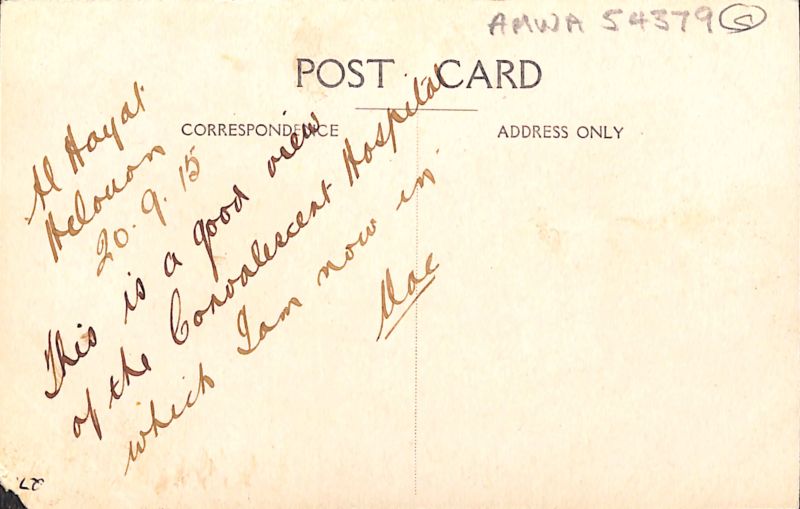 AMWA 54379 G
POST CARD
CORRESPONDENCE
ADDRESS ONLY
Al Hayat
Helouan
20.9.15
This is a good view
of the Convalescent Hospital
which I am now in
Mac